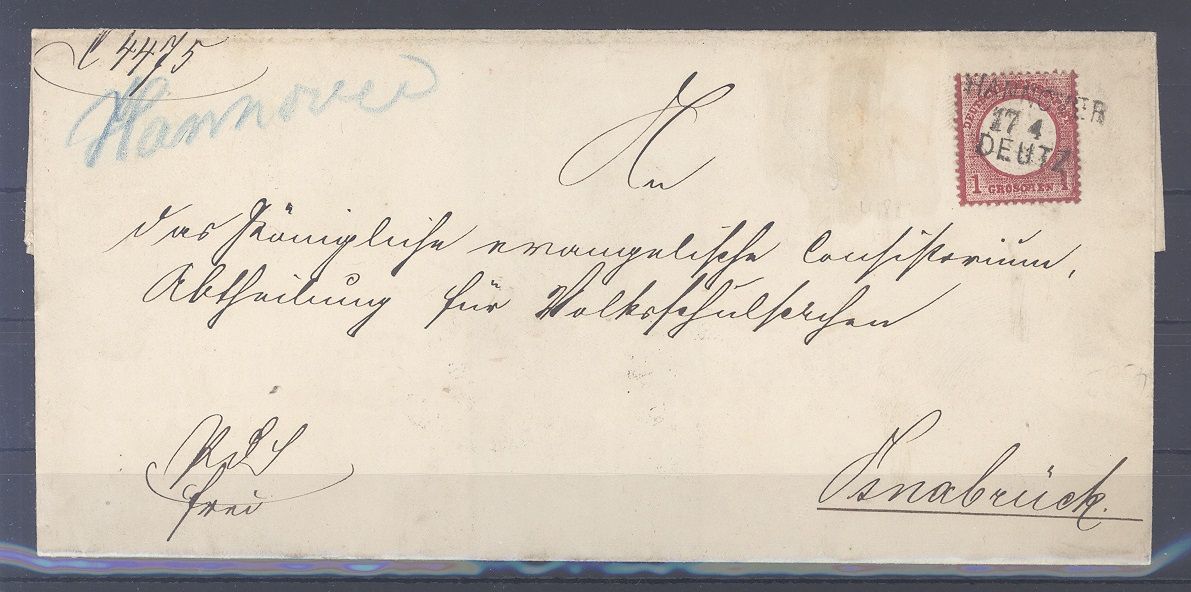 C 4475
Hannover
HANNOVER
17 4
DEUTZ
1 GROSCHEN 1
An
das Königliche evangelische Consistorium,
Abtheilung für Volksschulsachen
frei
Osnabrück.